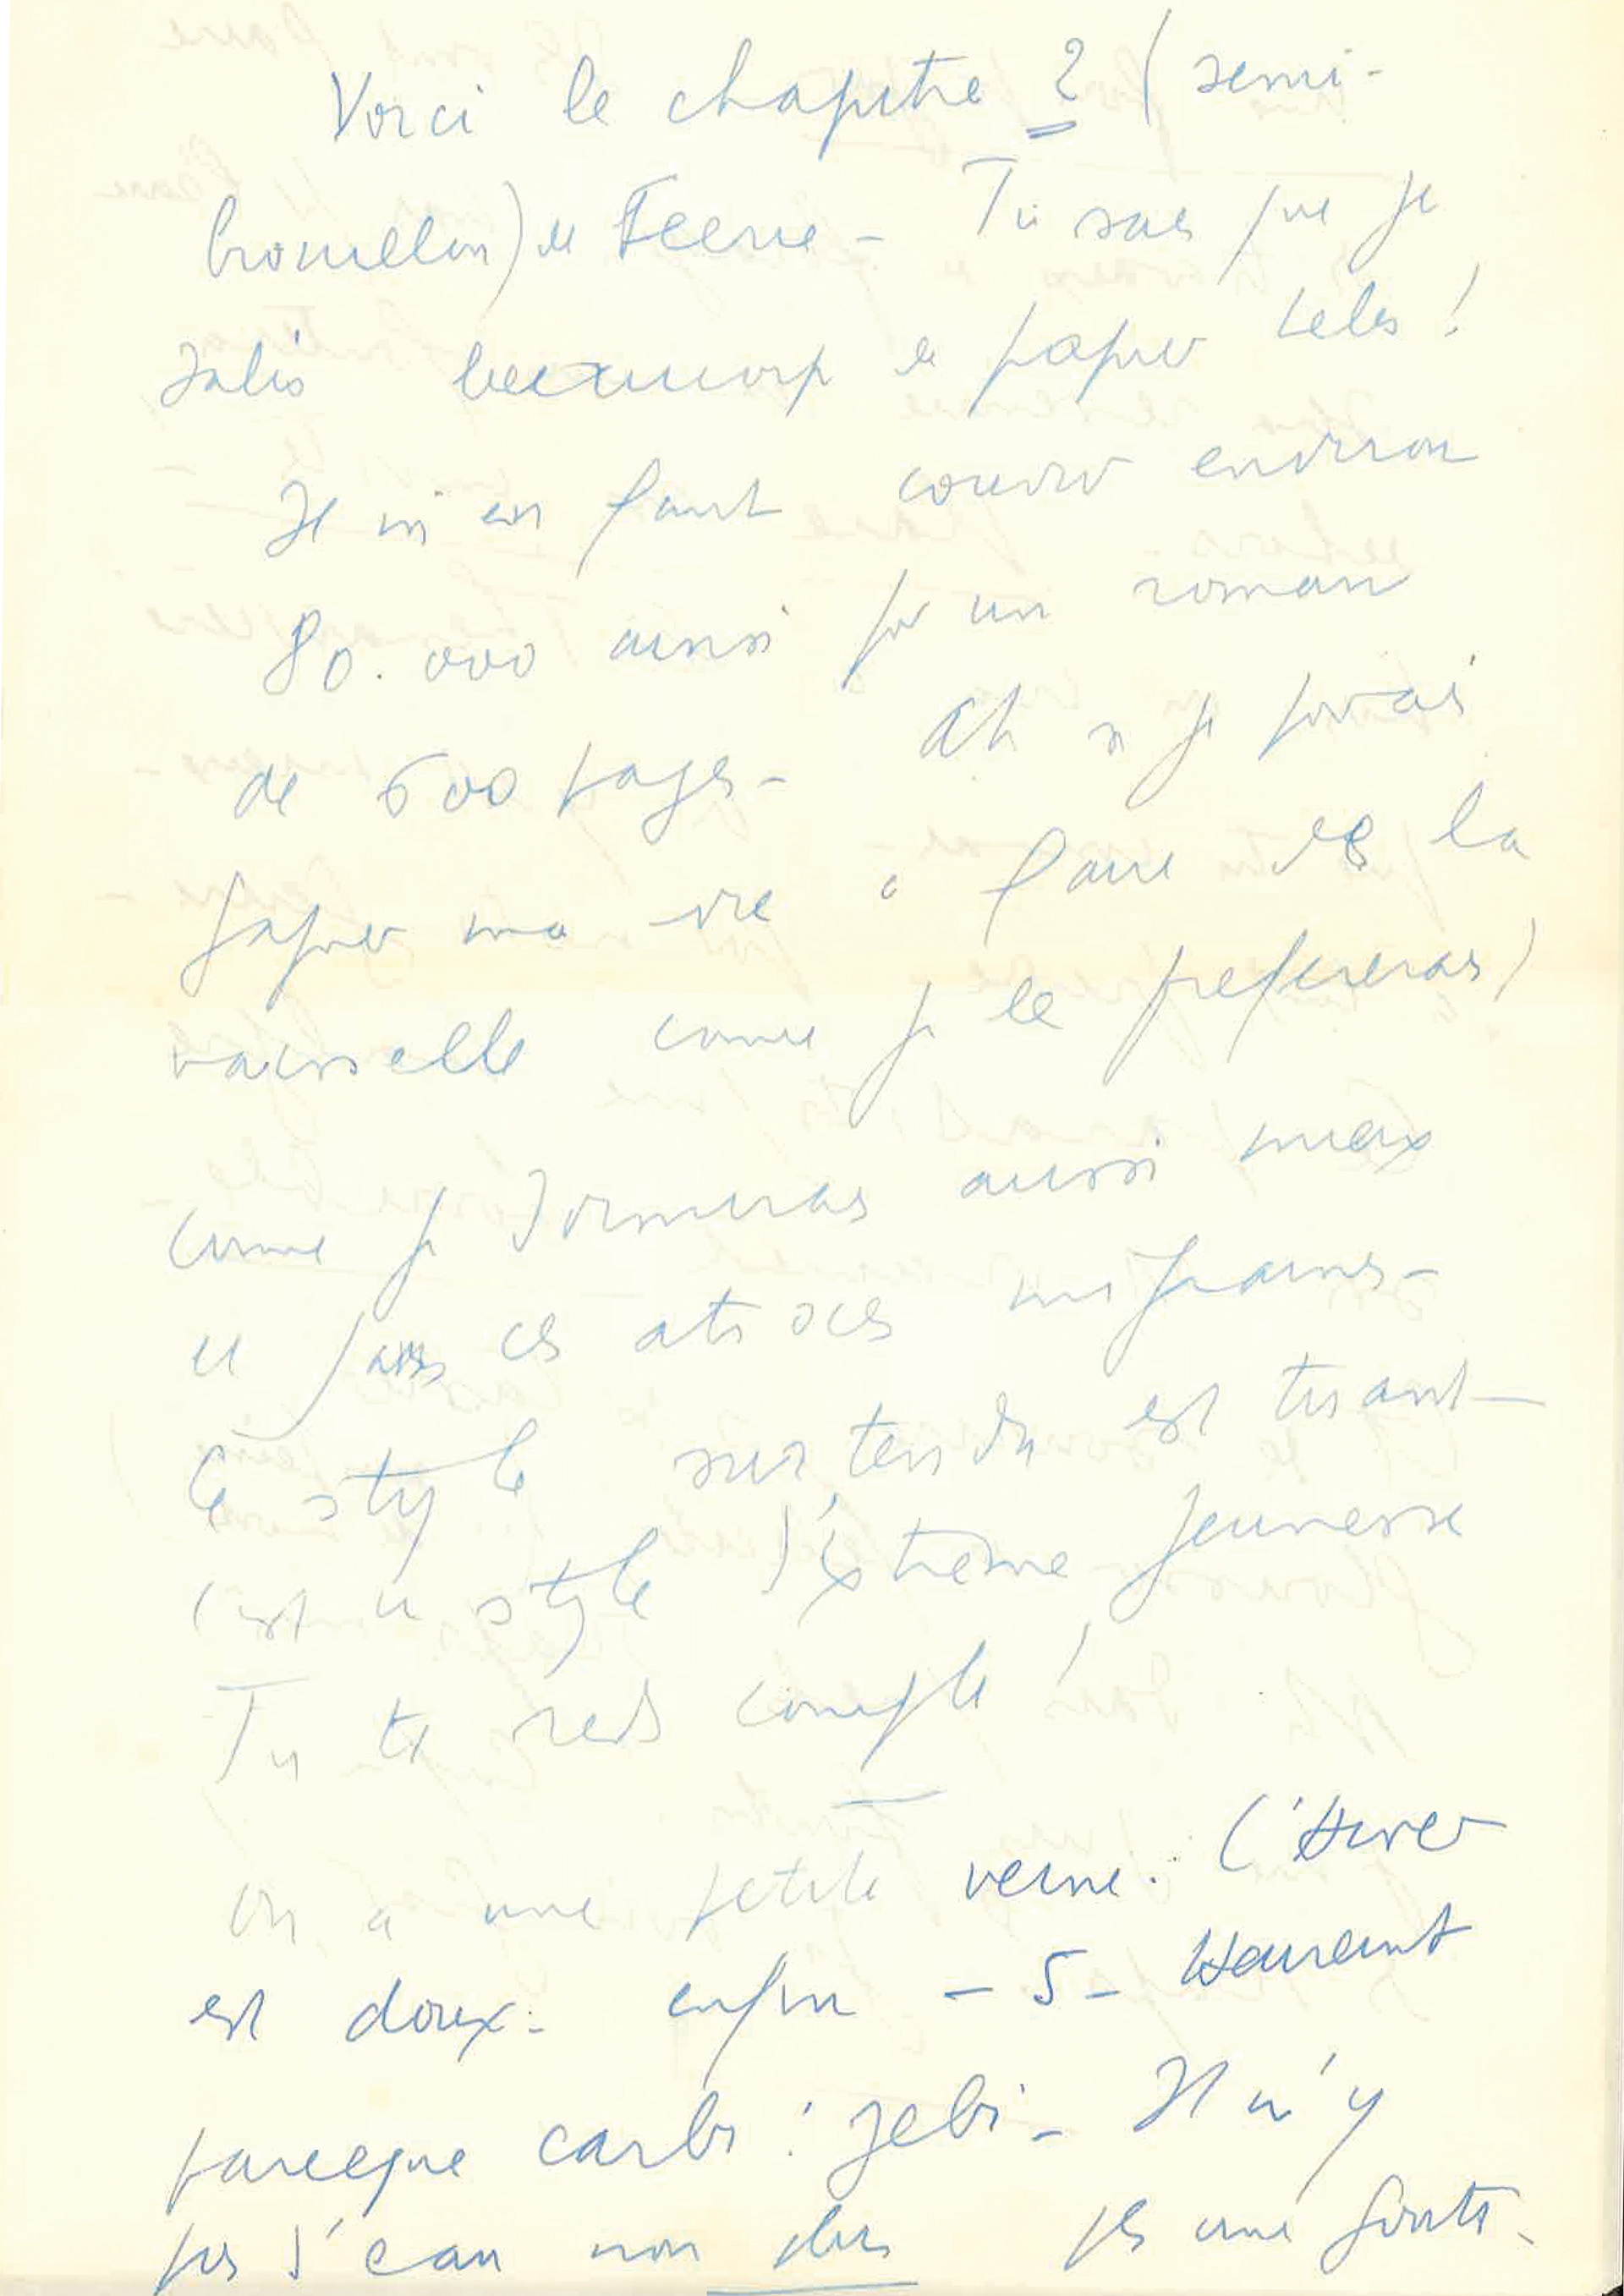 Voici le chapitre 2 (semi-
brouillon) de Féerie - Tu sais que je
salis beaucoup de papier hélas !
Il m'en faut couvrir environ
80.000 ainsi pr un roman
de 600 pages - Ah si je pouvais
gagner ma vie à faire de la
vaisselle comme je le préférerais !
comme je dormirais aussi mieux
et sans ces atroces migraines -
Ce style sur tendu est tuant -
C'est un style d'extrême jeunesse
Tu te rends compte !
On a une petite veine. L'Hiver
est doux - enfin - 5 - Heureust
parceque carbi : zebi - Il n'y
pas d'eau non plus pas une goutte -